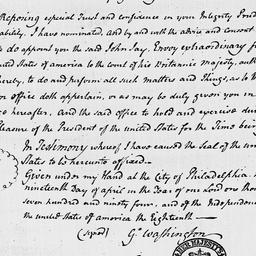 Reposing especial Trust and confidence in your Integrity Prud
ability, I have nominated, and by and with the advice and consent
do appoint you the said John Jay, Envoy extraordinary f
United States of america to the court of his Britannic majesty, auth
hereby, to do and perform all such matters and things, as to th
or office doth appertain, or as may be duly given you in
o hereafter, and the said office to hold and exercise durin
Pleasure of the President of the united States for the Time being
In Testimony whereof I have caused the Seal of the un
States to be hereunto affixed—
Given under my Hand at the City of Philadelphia
nineteenth Day of april in the Year of our Lord one thou
seven hundred and ninety four, and of the Independenc
the united States of america the Eighteenth—
(signed) G. Washington